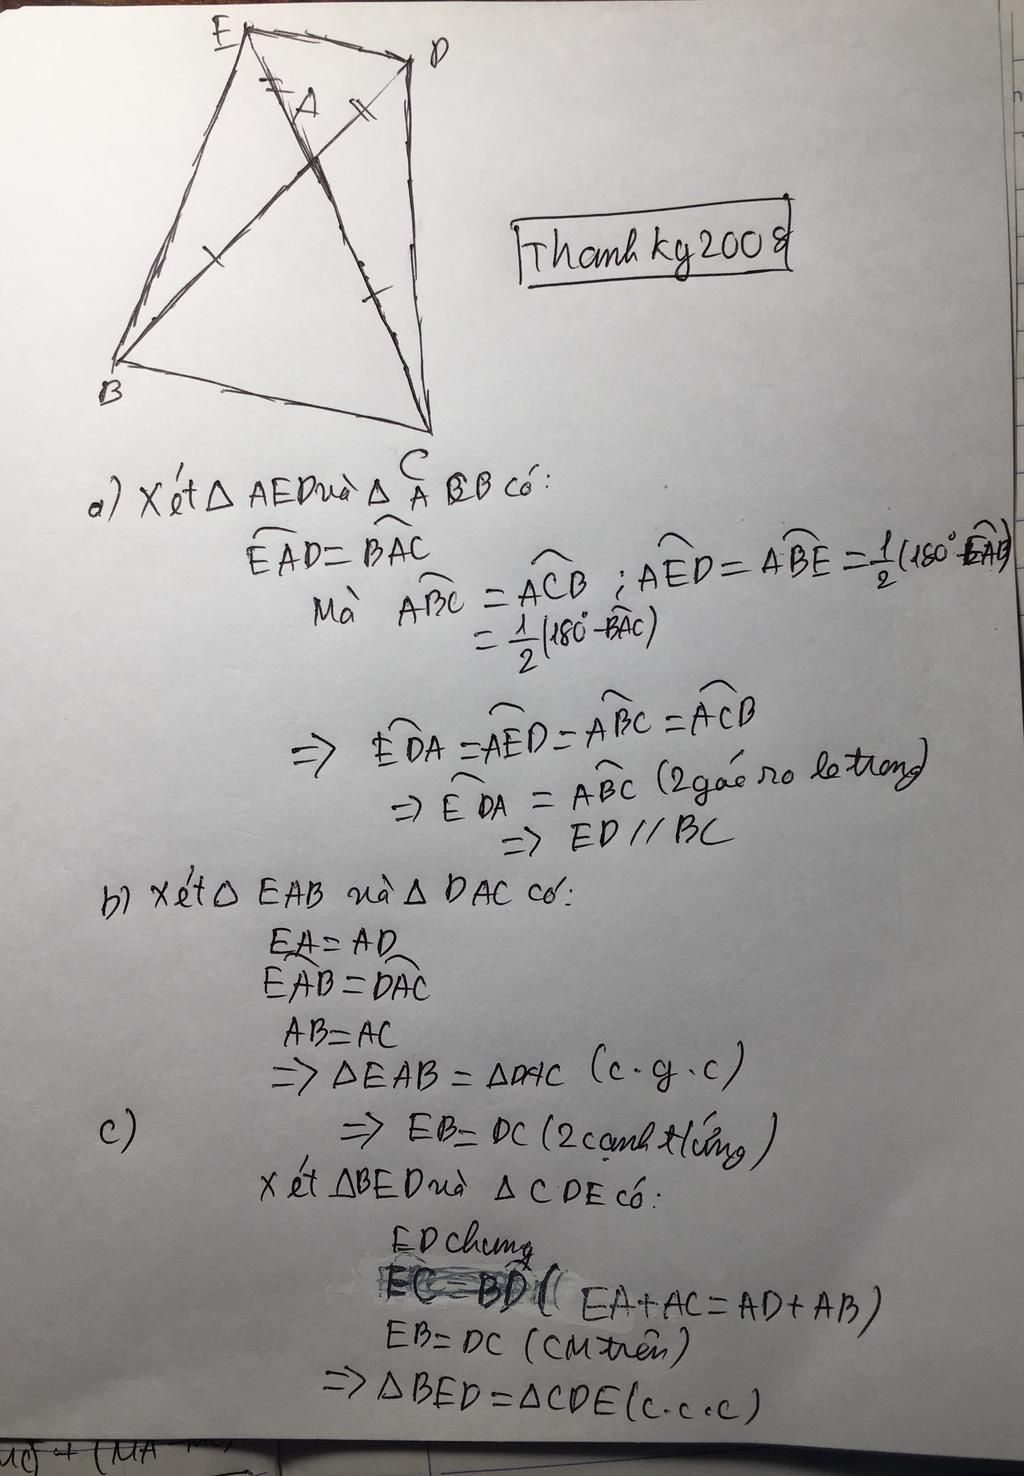 E
D
A
Thanhkg2008
B
C
a) Xét Δ AED và Δ ACB có:
EAD = BAC
Mà ABC = ACB ; AED = ABE = 1/2 (180° - EAB)
= 1/2 (180° - BAC)
=> EDA = AED = ABC = ACB
=> EDA = ABC (2 góc so le trong)
=> ED // BC
b) Xét Δ EAB và Δ DAC có:
EA = AD
EAB = DAC
AB = AC
=> ΔEAB = ΔDAC (c.g.c)
c) => EB = DC (2 cạnh t/ứng)
Xét ΔBED và Δ CDE có:
ED chung
EC = BD ( EA + AC = AD + AB )
EB = DC (CM trên)
=> ΔBED = ΔCDE (c.c.c)